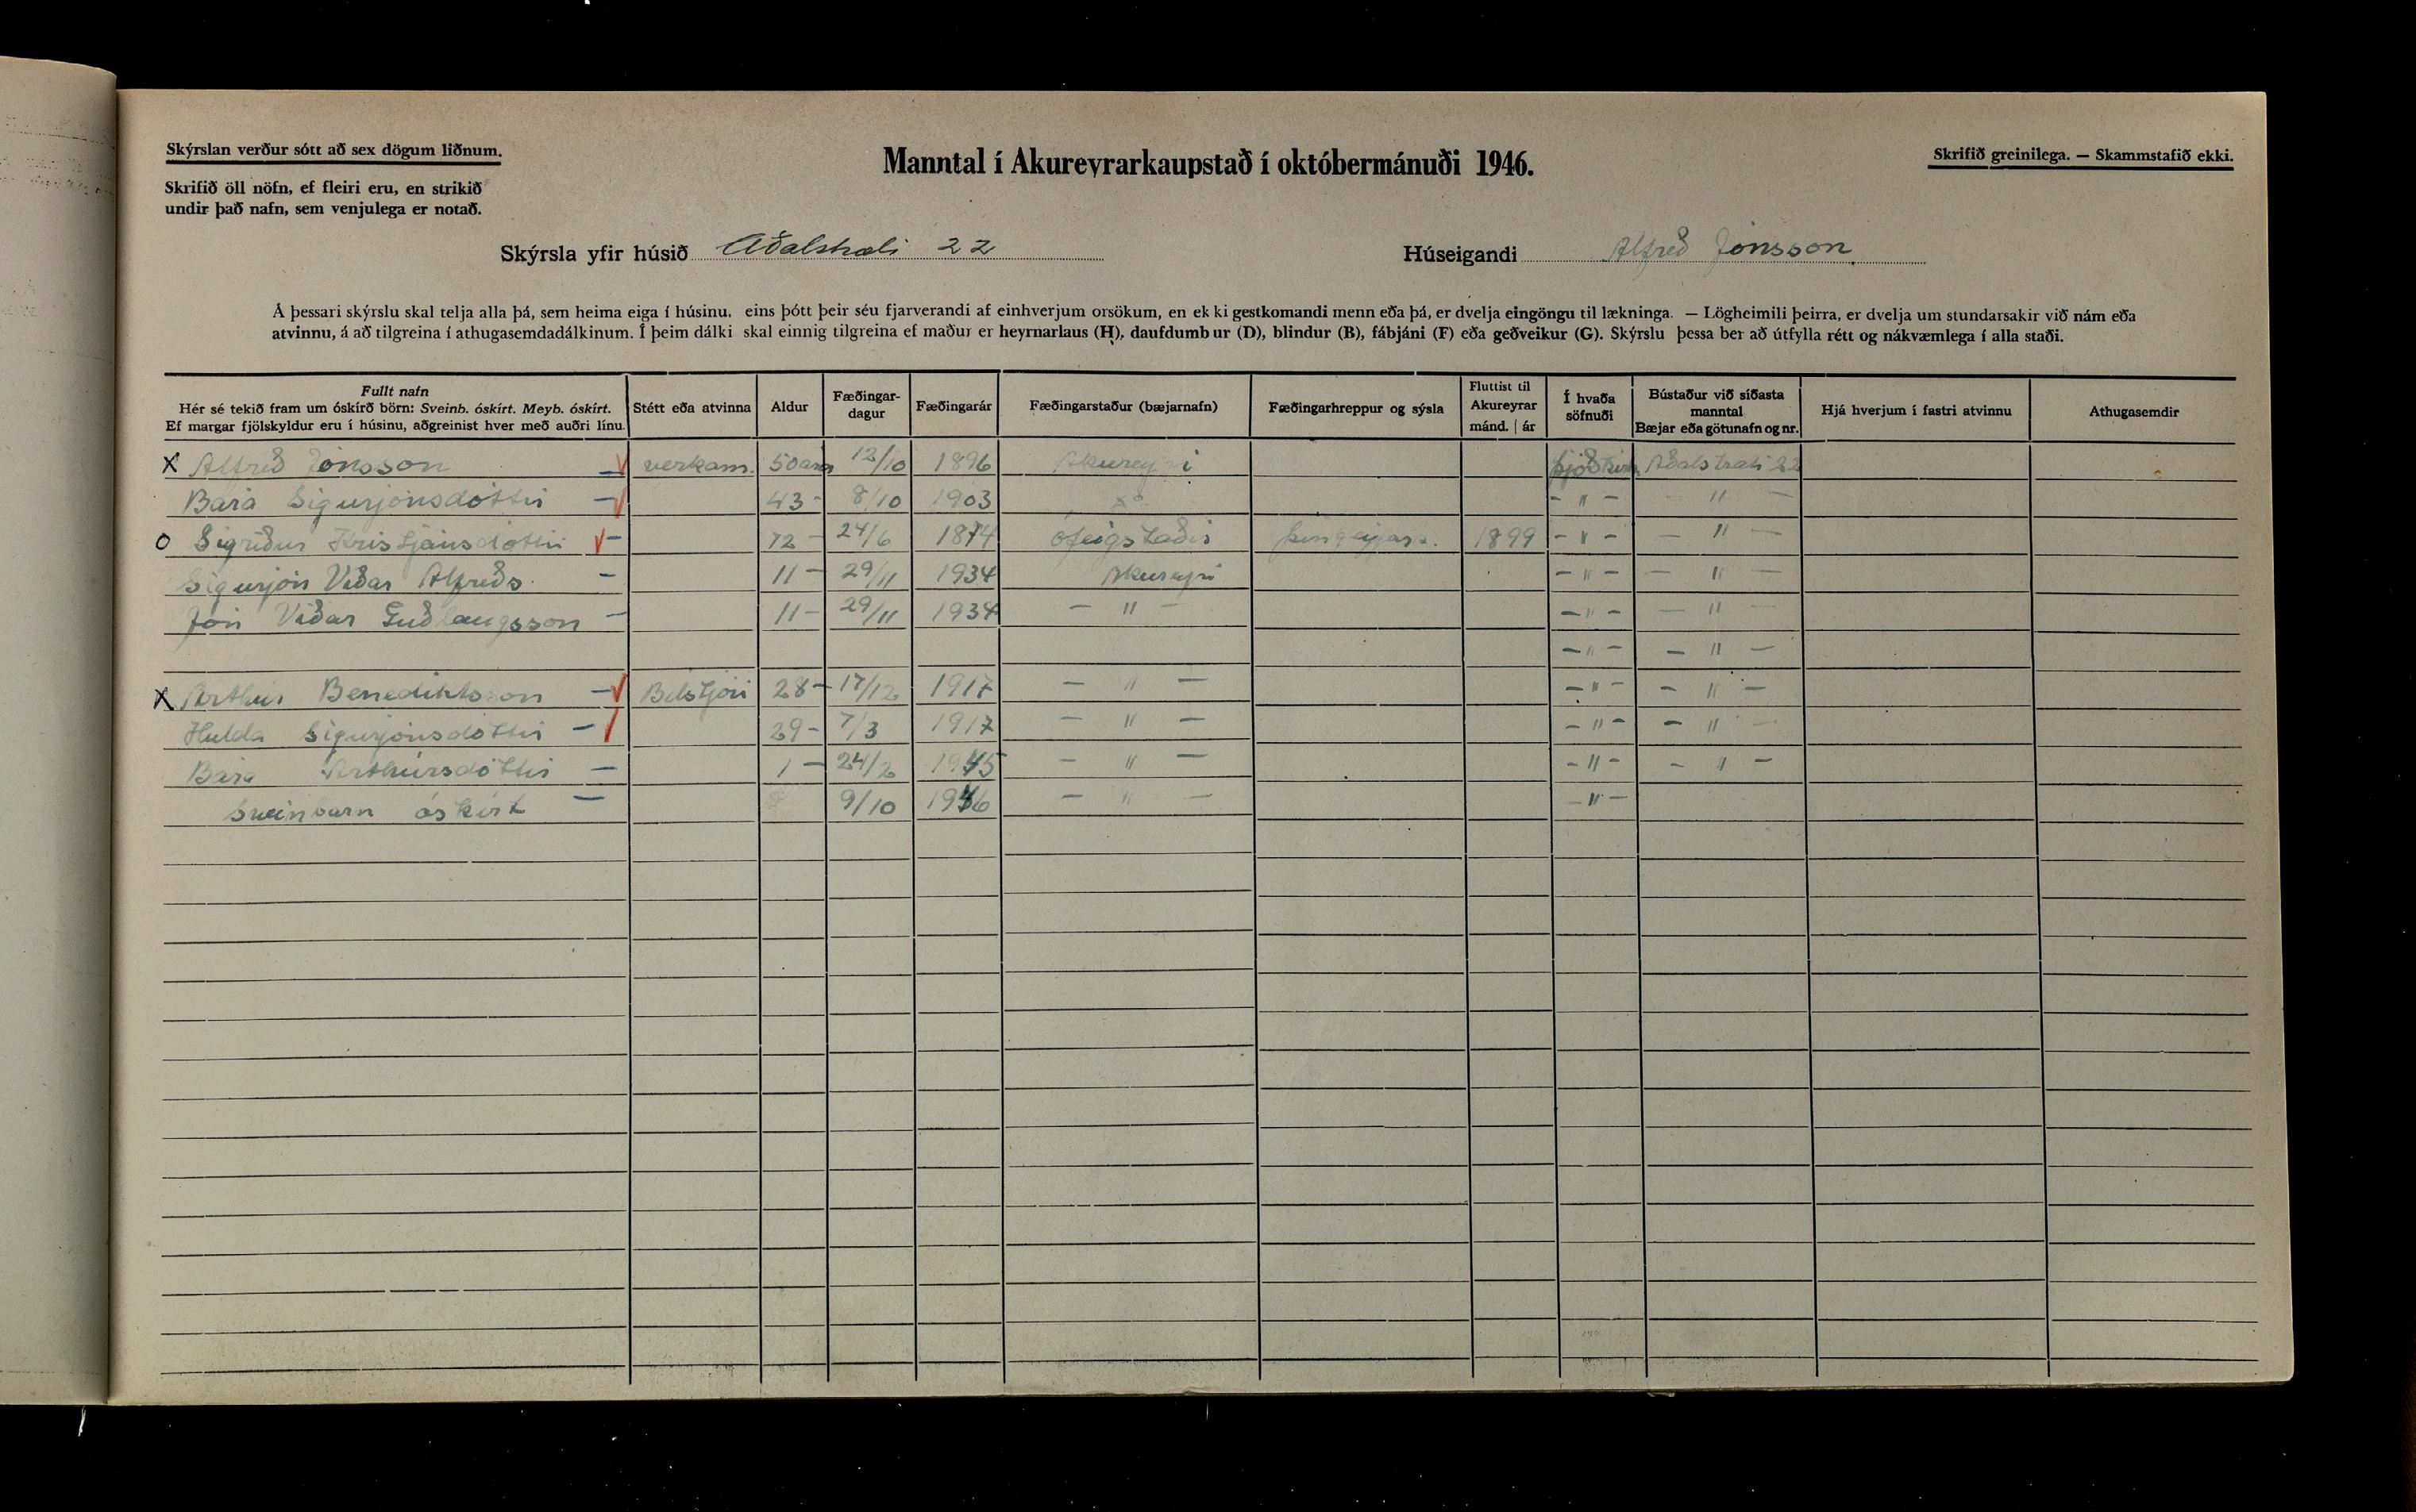 Skýrslan verður sótt að sex dögum liðnum.
Skrifið öll nöfn, ef fleiri eru, en strikið
undir það nafn, sem venjulega er notað.
Manntal í Akureyrarkaupstað í októbermánuði 1946.
Skrifið greinilega. — Skammstafið ekki.
Skýrsla yfir húsið Aðalstræti 22 Húseigandi Alfreð Jónsson
Á þessari skýrslu skal telja alla þá, sem heima eiga í húsinu, eins þótt þeir séu fjarverandi af einhverjum orsökum, en ekki gestkomandi menn eða þá, er dvelja eingöngu til lækninga. — Lögheimili þeirra, er dvelja um stundarsakir við nám eða
atvinnu, á að tilgreina í athugasemdadálkinum. Í þeim dálki skal einnig tilgreina ef maður er heyrnarlaus (H), daufdumbur (D), blindur (B), fábjáni (F) eða geðveikur (G). Skýrslu þessa ber að útfylla rétt og nákvæmlega í alla staði.
Fullt nafn
Hér sé tekið fram um óskírð börn: Sveinb. óskírt. Meyb. óskírt.
Ef margar fjölskyldur eru í húsinu, aðgreinist hver með auðri línu.
Stétt eða atvinna
Aldur
Fæðingar-
dagur
Fæðingarár
Fæðingarstaður (bæjarnafn)
Fæðingarhreppur og sýsla
Fluttist til
Akureyrar
mánd. | ár
Í hvaða
söfnuði
Bústaður við síðasta
manntal
Bæjar eða götunafn og nr.
Hjá hverjum í fastri atvinnu
Athugasemdir
X Alfreð Jónsson – verkam. 50 ára 12/10 1896 Akureyri Þjóðkirk. Aðalstræti 22
Bára Sigurjónsdóttir – 43 – 8/10 1903 – " – – " –
o Sigríður Kristjánsdóttir – 72 – 24/6 1874 Ófeigstaðir Þingeyjars. 1899 – " – – " –
Sigurjón Viðar Alfreðs. – 11 – 29/11 1934 Akureyri – " – – " –
Jón Viðar Guðlaugsson – 11 – 29/11 1934 – " – – " – – " –
– " – – " –
X Arthúr Benediktsson – Bílstjóri 28 – 17/12 1917 – " – – " – – " –
Hulda Sigurjónsdóttir – 29 – 7/3 1917 – " – – " – – " –
Bára Arthúrsdóttir – 1 – 24/2 1945 – " – – " – – " –
Sveinbarn óskírt – 9/10 1946 – " – – " –